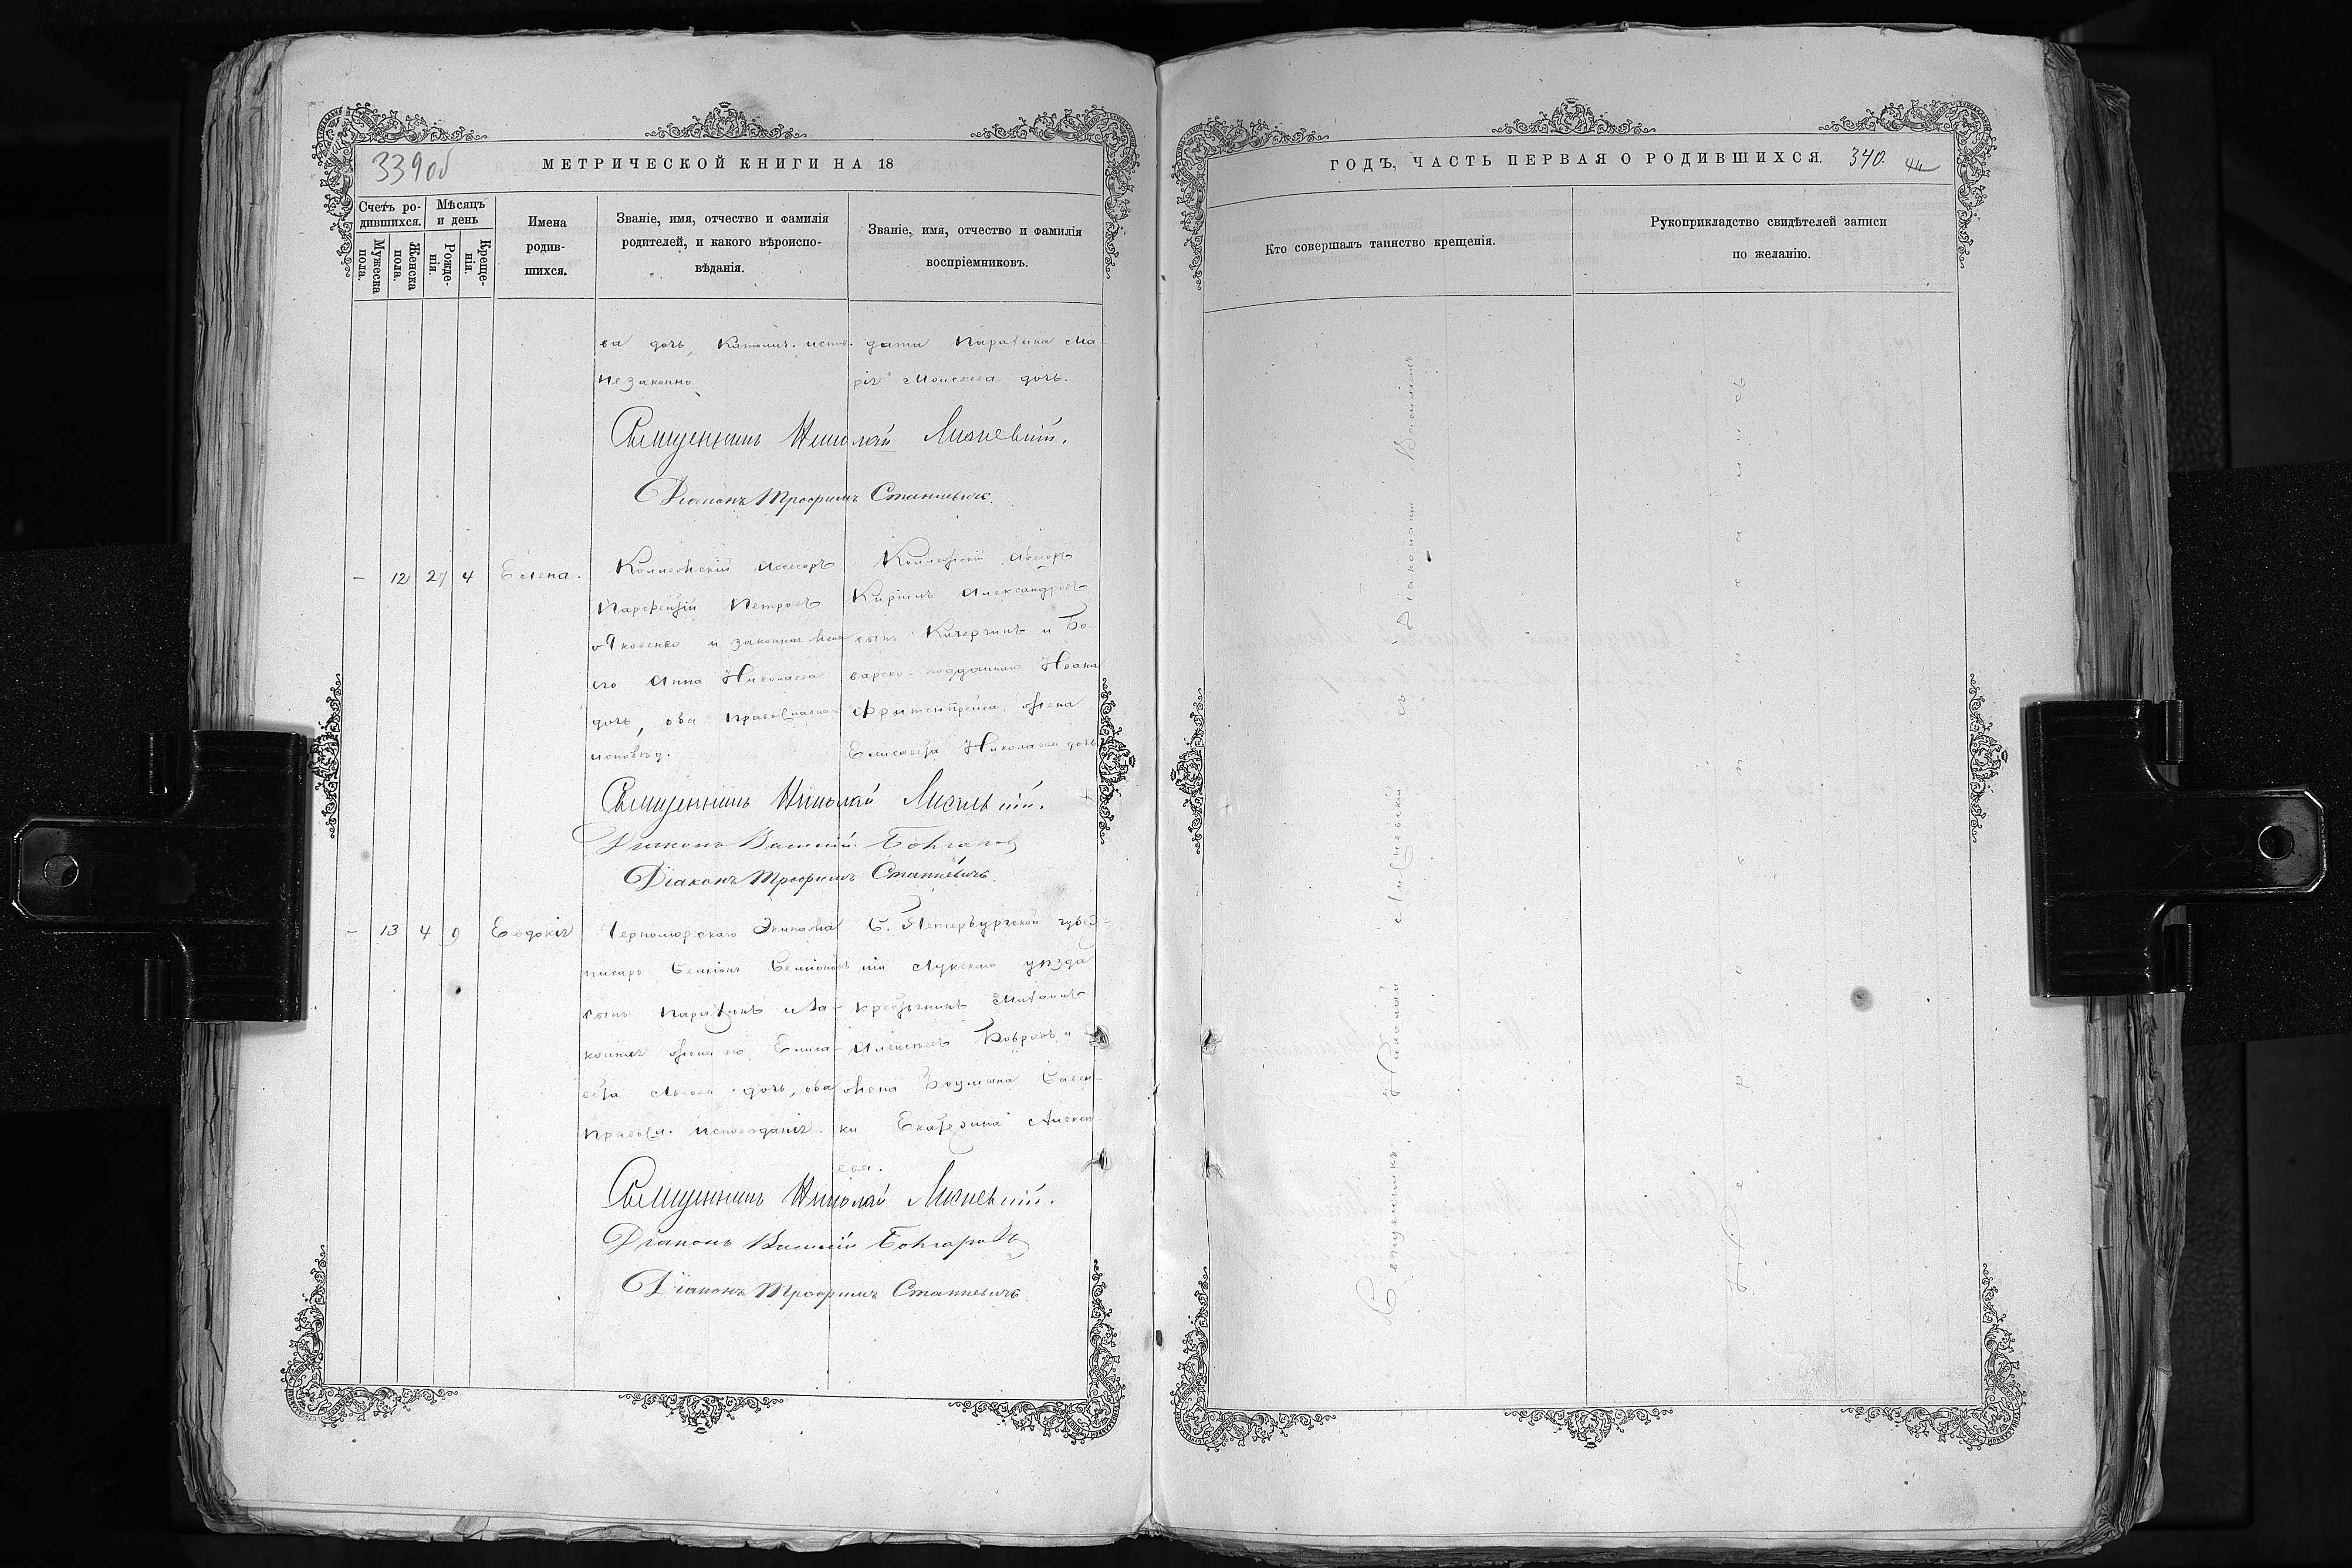 339об
МЕТРИЧЕСКОЙ КНИГИ НА 18
Счетъ ро-
дившихся.
Мѣсяцъ
и день
Мужеска
пола.
Женска
пола.
Рожде-
нія.
Креще-
нія.
Имена
родив-
шихся.
Званіе, имя, отчество и фамилія
родителей, и какого вѣроиспо-
вѣданія.
Званіе, имя, отчество и фамилія
воспріемниковъ.
ва дочь, Католич. испов.
Незаконно
дата Ма-
рія Моисеева дочь.
Священникъ Николай
Діаконъ Трофимъ Станкевичъ.
— 12 27 4 Елена.
Коллежскій Асесоръ
Парфентій Петровъ
Яковенко и законная жена
его Анна Николаева
дочь, оба православнаго
исповѣд.
Коллежскій Асесоръ
Кирилъ Александровъ
сынъ Кичергинъ и Ба-
варско-подданнаго Ивана
жена
Елисавета Николаева дочь
Священникъ Николай
Діаконъ Василій
Діаконъ Трофимъ Станкевичъ.
— 13 4 9 Евдокія
Черноморскаго Экипажа
писарь Семіонъ Семіоновъ
сынъ и за-
конная жена его Елиса-
вета Львова дочь, оба
правосл. исповѣданія.
С. Петербургской губер-
ніи Лужскаго уѣзда
крестьянинъ Михаилъ
Алексѣевъ Бобровъ и
жена Боцмана Савен-
ки Екатерина Алексѣ-
ева.
Священникъ Николай
Діаконъ Василій
Діаконъ Трофимъ Станкевичъ.
ГОДЪ, ЧАСТЬ ПЕРВАЯ О РОДИВШИХСЯ.
340.
Кто совершалъ таинство крещенія.
Рукоприкладство свидѣтелей записи
по желанію.
Священникъ Николай съ Діакономъ Василіемъ